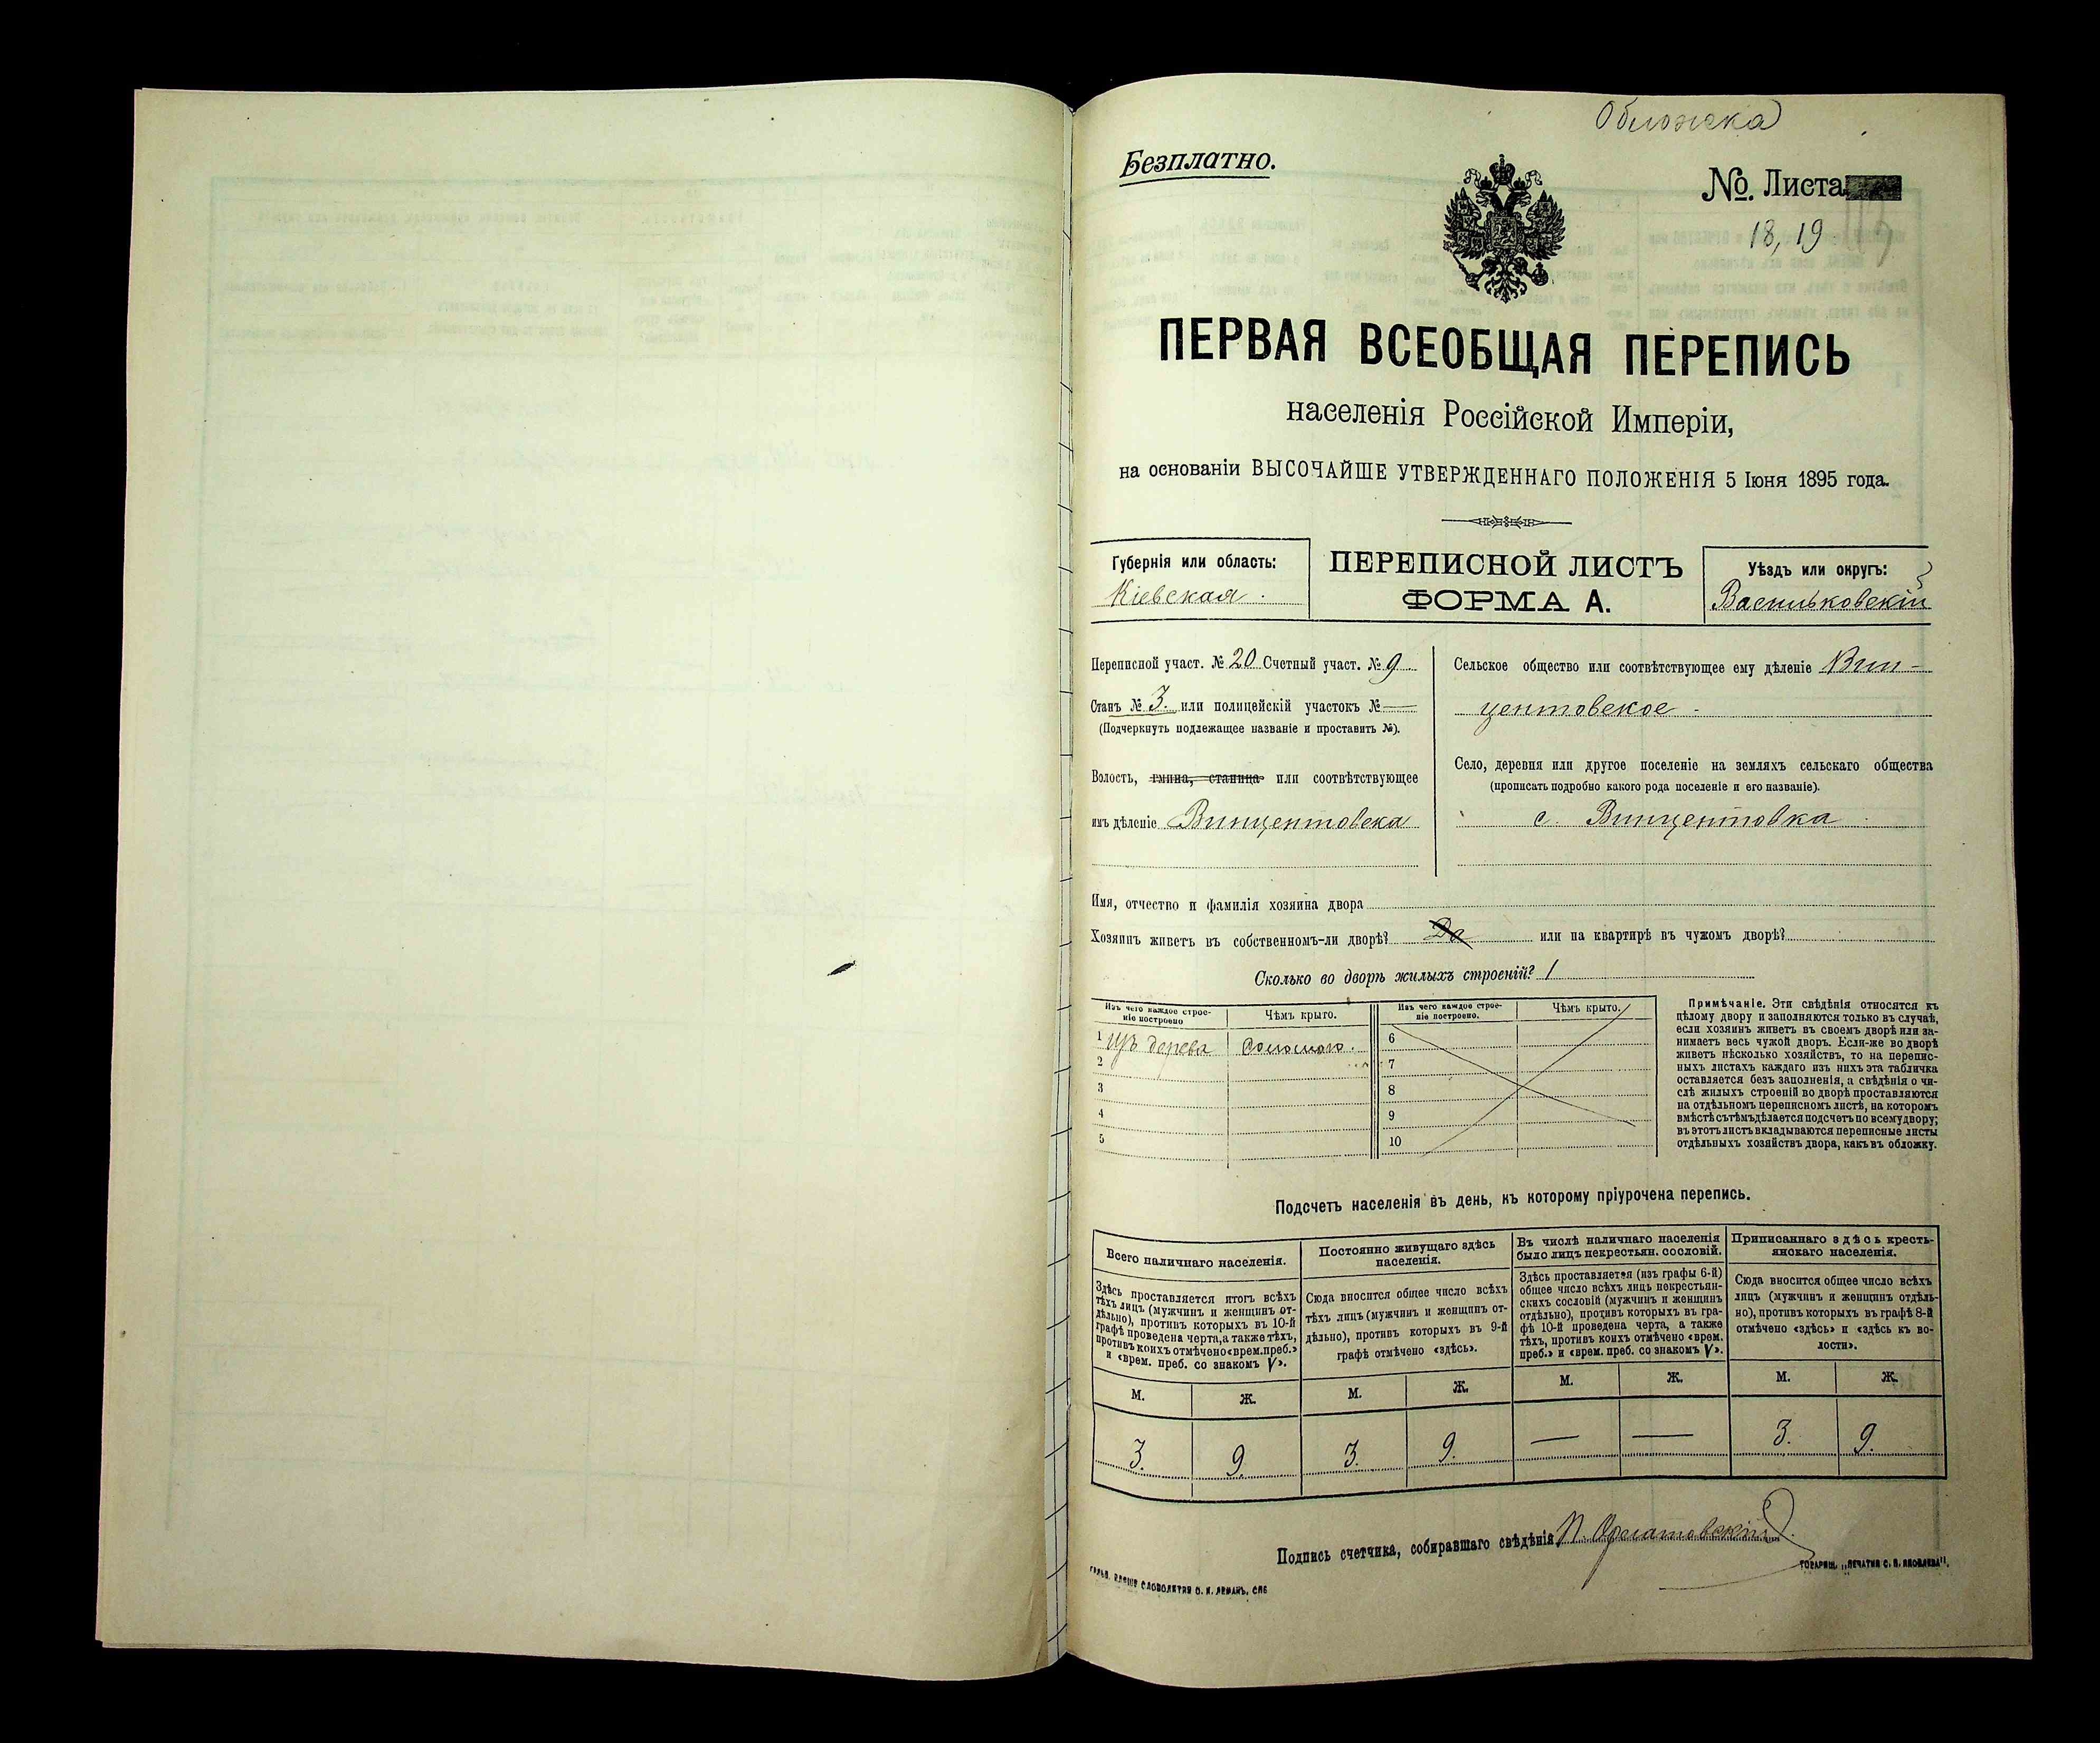 Обложка
Безплатно.
№ Листа
18, 19
ПЕРВАЯ ВСЕОБЩАЯ ПЕРЕПИСЬ
населенія Россійской Имперіи,
на основаніи ВЫСОЧАЙШЕ УТВЕРЖДЕННАГО ПОЛОЖЕНІЯ 5 Іюня 1895 года.
Губернія или область:
Кіевская.
ПЕРЕПИСНОЙ ЛИСТЪ
ФОРМА А.
Уѣздъ или округъ:
Васильковскій
Переписной участ. № 20 Счетный участ. № 9
Станъ № 3. или полицейскій участокъ № —
(Подчеркнуть подлежащее названіе и проставить №).
Волость, гмина, станица или соотвѣтствующее
имъ дѣленіе Винцентовска
Сельское общество или соотвѣтствующее ему дѣленіе Вин-
центовское
Село, деревня или другое поселеніе на земляхъ сельскаго общества
(прописать подробно какого рода поселеніе и его названіе).
с. Винцентовка
Имя, отчество и фамилія хозяина двора
Хозяинъ живетъ въ собственномъ-ли дворѣ? Да или на квартирѣ въ чужомъ дворѣ?
Сколько во дворѣ жилыхъ строеній? 1
Изъ чего каждое строе-
ніе построено
Чѣмъ крыто.
Изъ чего каждое строе-
ніе построено.
Чѣмъ крыто.
1 изъ дерева соломою.
2
3
4
5
6
7
8
9
10
Примѣчаніе. Эти свѣдѣнія относятся къ
цѣлому двору и заполняются только въ случаѣ,
если хозяинъ живетъ въ своемъ дворѣ или за-
нимаетъ весь чужой дворъ. Если-же во дворѣ
живетъ нѣсколько хозяйствъ, то на перепис-
ныхъ листахъ каждаго изъ нихъ эта табличка
оставляется безъ заполненія, а свѣдѣнія о чи-
слѣ жилыхъ строеній во дворѣ проставляются
на отдѣльномъ переписномъ листѣ, на которомъ
вмѣстѣ съ тѣмъ дѣлается подсчетъ по всему двору;
въ этотъ листъ вкладываются переписные листы
отдѣльныхъ хозяйствъ двора, какъ въ обложку.
Подсчетъ населенія въ день, къ которому пріурочена перепись.
Всего наличнаго населенія.
Здѣсь проставляется итогъ всѣхъ
тѣхъ лицъ (мужчинъ и женщинъ от-
дѣльно), противъ которыхъ въ 10-й
графѣ проведена черта, а также тѣхъ,
противъ коихъ отмѣчено «врем. преб.»
и «врем. преб. со знакомъ V».
Постоянно живущаго здѣсь
населенія.
Сюда вносится общее число всѣхъ
тѣхъ лицъ (мужчинъ и женщинъ от-
дѣльно), противъ которыхъ въ 9-й
графѣ отмѣчено «здѣсь».
Въ числѣ наличнаго населенія
было лицъ некрестьян. сословій.
Здѣсь проставляется (изъ графы 6-й)
общее число всѣхъ лицъ некрестьян-
скихъ сословій (мужчинъ и женщинъ
отдѣльно), противъ которыхъ въ гра-
фѣ 10-й проведена черта, а также
тѣхъ, противъ коихъ отмѣчено «врем.
преб.» и «врем. преб. со знакомъ V».
Приписаннаго здѣсь кресть-
янскаго населенія.
Сюда вносится общее число всѣхъ
лицъ (мужчинъ и женщинъ отдѣль-
но), противъ которыхъ въ графѣ 8-й
отмѣчено «здѣсь» и «здѣсь къ во-
лости».
М. Ж. М. Ж. М. Ж. М. Ж.
3. 9. 3. 9. — — 3. 9.
Подпись счетчика, собиравшаго свѣдѣнія
СЛОВОЛИТНЯ О. И. ЛЕМАНЪ, СПБ
ТОВАРИЩ. „ПЕЧАТНЯ С. П. ЯКОВЛЕВА".